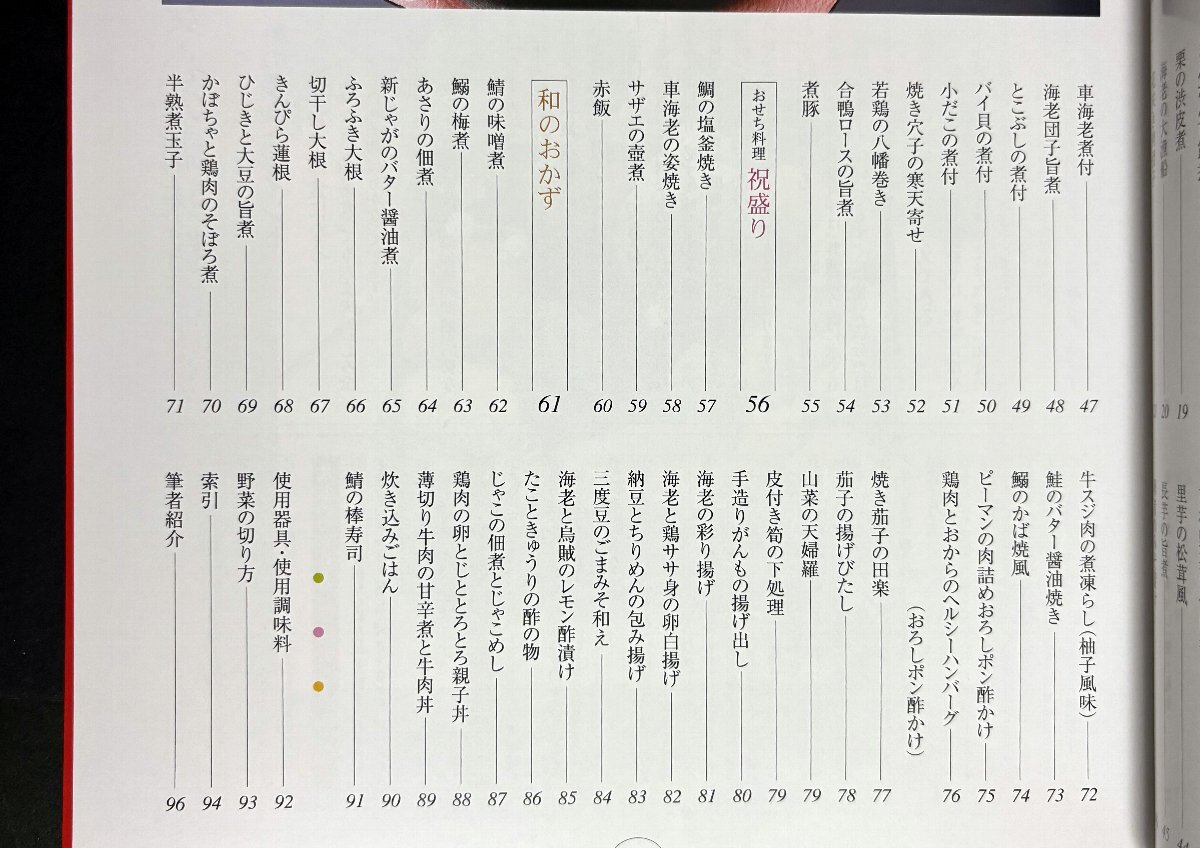 車海老煮付 47
海老団子旨煮 48
とこぶしの煮付 49
バイ貝の煮付 50
小だこの煮付 51
焼き穴子の寒天寄せ 52
若鶏の八幡巻き 53
合鴨ロースの旨煮 54
煮豚 55
おせち料理 祝盛り 56
鯛の塩釜焼き 57
車海老の姿焼き 58
サザエの壺煮 59
赤飯 60
和のおかず 61
鯖の味噌煮 62
鰯の梅煮 63
あさりの佃煮 64
新じゃがのバター醤油煮 65
ふろふき大根 66
切干し大根 67
きんぴら蓮根 68
ひじきと大豆の旨煮 69
かぼちゃと鶏肉のそぼろ煮 70
半熟煮玉子 71
牛スジ肉の煮凍らし(柚子風味) 72
鮭のバター醤油焼き 73
鰯のかば焼風 74
ピーマンの肉詰めおろしポン酢かけ 75
鶏肉とおからのヘルシーハンバーグ 76
(おろしポン酢かけ)
焼き茄子の田楽 77
茄子の揚げびたし 78
山菜の天婦羅 79
皮付き筍の下処理 79
手造りがんもの揚げ出し 80
海老の彩り揚げ 81
海老と鶏ササ身の卵白揚げ 82
納豆とちりめんの包み揚げ 83
三度豆のごまみそ和え 84
海老と烏賊のレモン酢漬け 85
たこときゅうりの酢の物 86
じゃこの佃煮とじゃこめし 87
鶏肉の卵とじととろとろ親子丼 88
薄切り牛肉の甘辛煮と牛肉丼 89
炊き込みごはん 90
鯖の棒寿司 91
使用器具・使用調味料 92
野菜の切り方 93
索引 94
筆者紹介 96
栗の渋皮煮 19
20
里芋の松茸風 44
長芋の旨煮 45